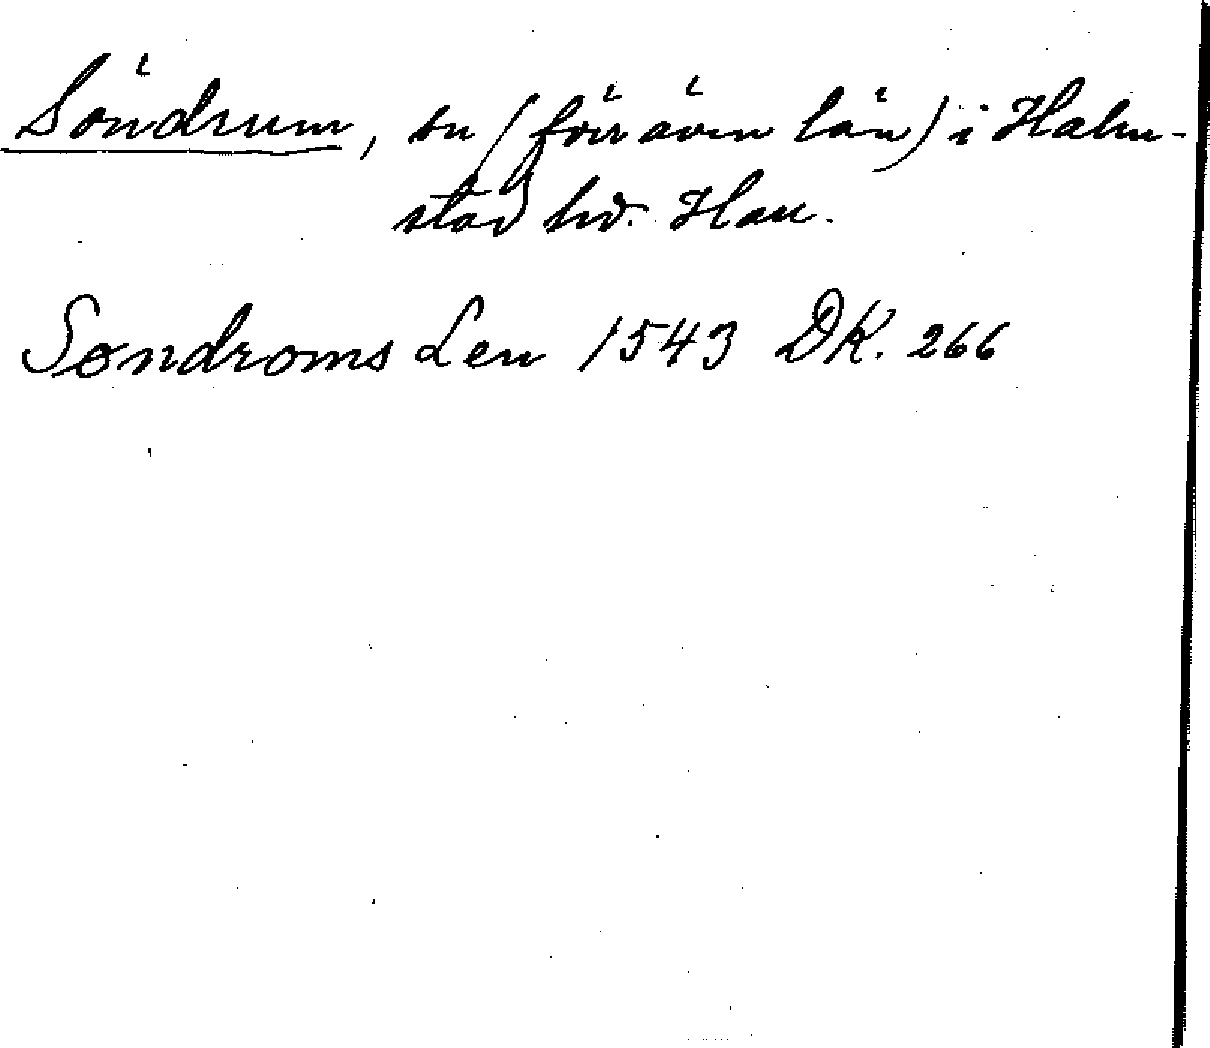 Söndrum, sn (förr även län) i Halm-
stad hd. Hall.
Søndroms Len 1543 DK. 266